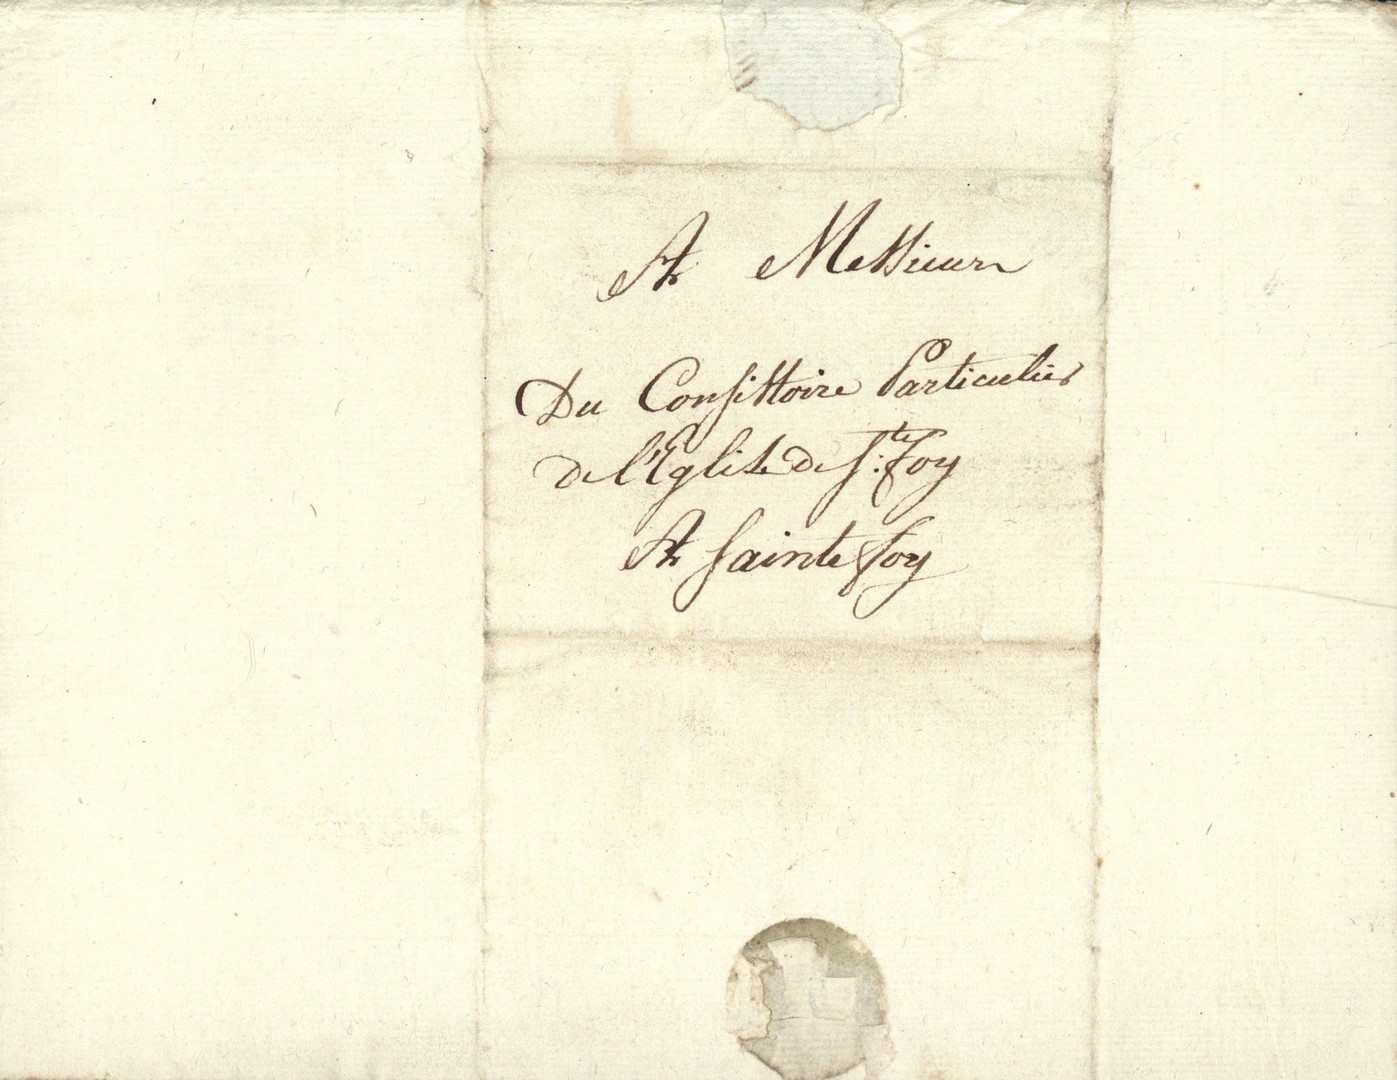 A Messieurs
Du Consistoire Particulier
de l'Eglise de S.te Foy
A Sainte Foy